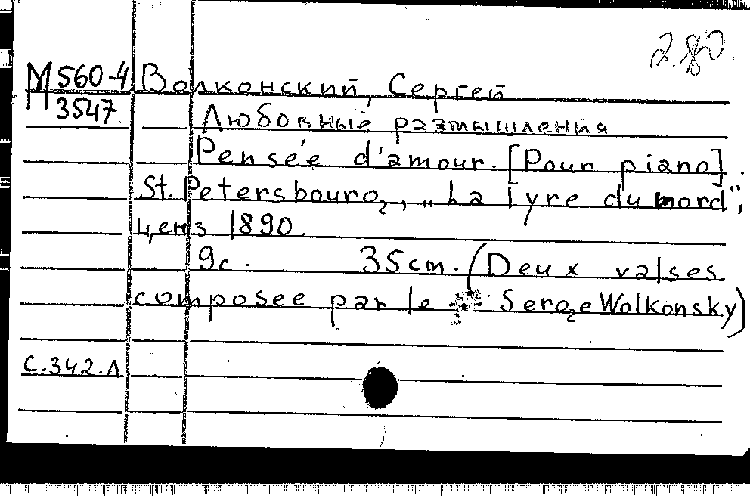 2.80.
М 560-4 Волконский, Сергей
3547 Любовные размышления
Pensée d'amour. [Pour piano].
St. Petersbourg, „La Lyre du nord",
ценз 1890.
9с. 35 cm. (Deux valses
composee par le Serge Wolkonsky)
С.342.Л